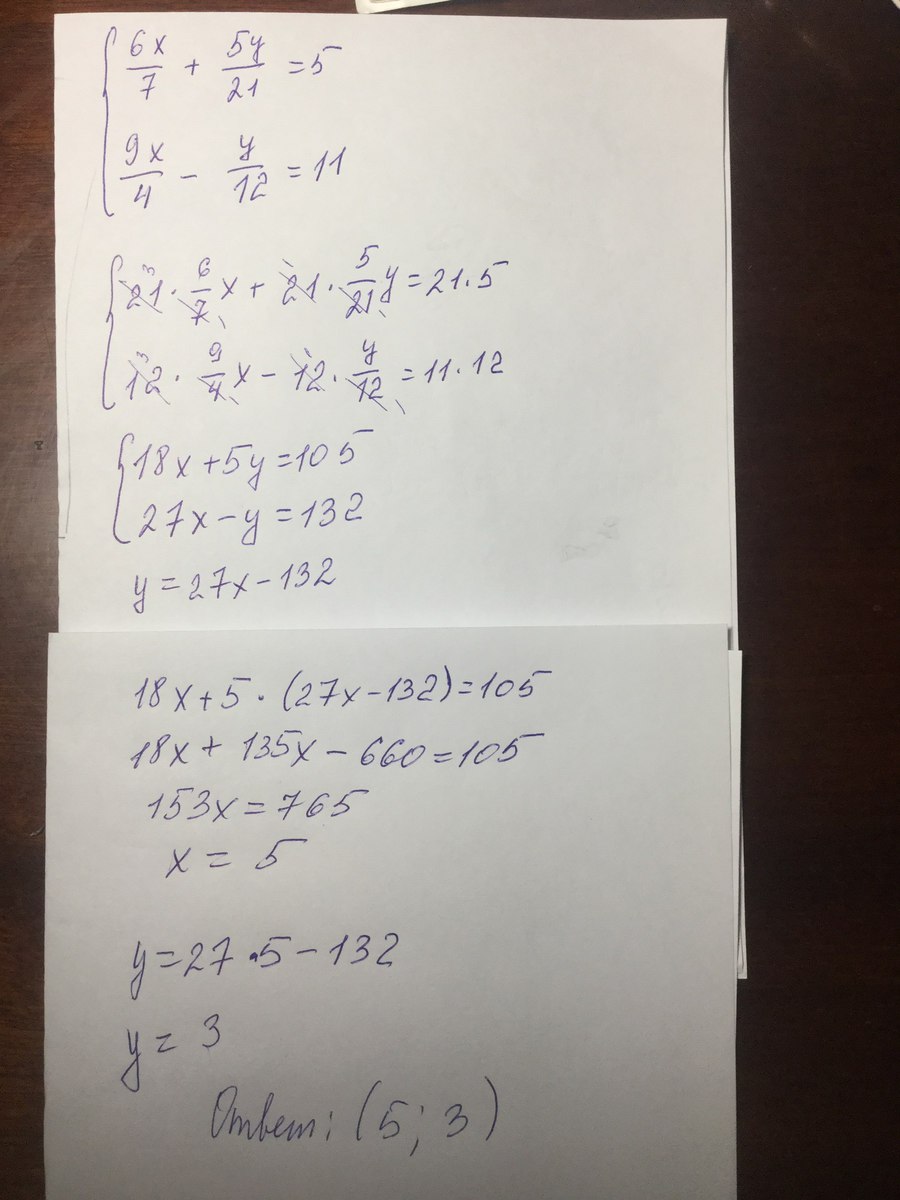 6x/7 + 5y/21 = 5
9x/4 - y/12 = 11
21 · 6/7 x + 21 · 5/21 y = 21 · 5
12 · 9/4 x - 12 · y/12 = 11 · 12
18x + 5y = 105
27x - y = 132
y = 27x - 132
18x + 5 · (27x - 132) = 105
18x + 135x - 660 = 105
153x = 765
x = 5
y = 27 · 5 - 132
y = 3
Ответ: (5; 3)